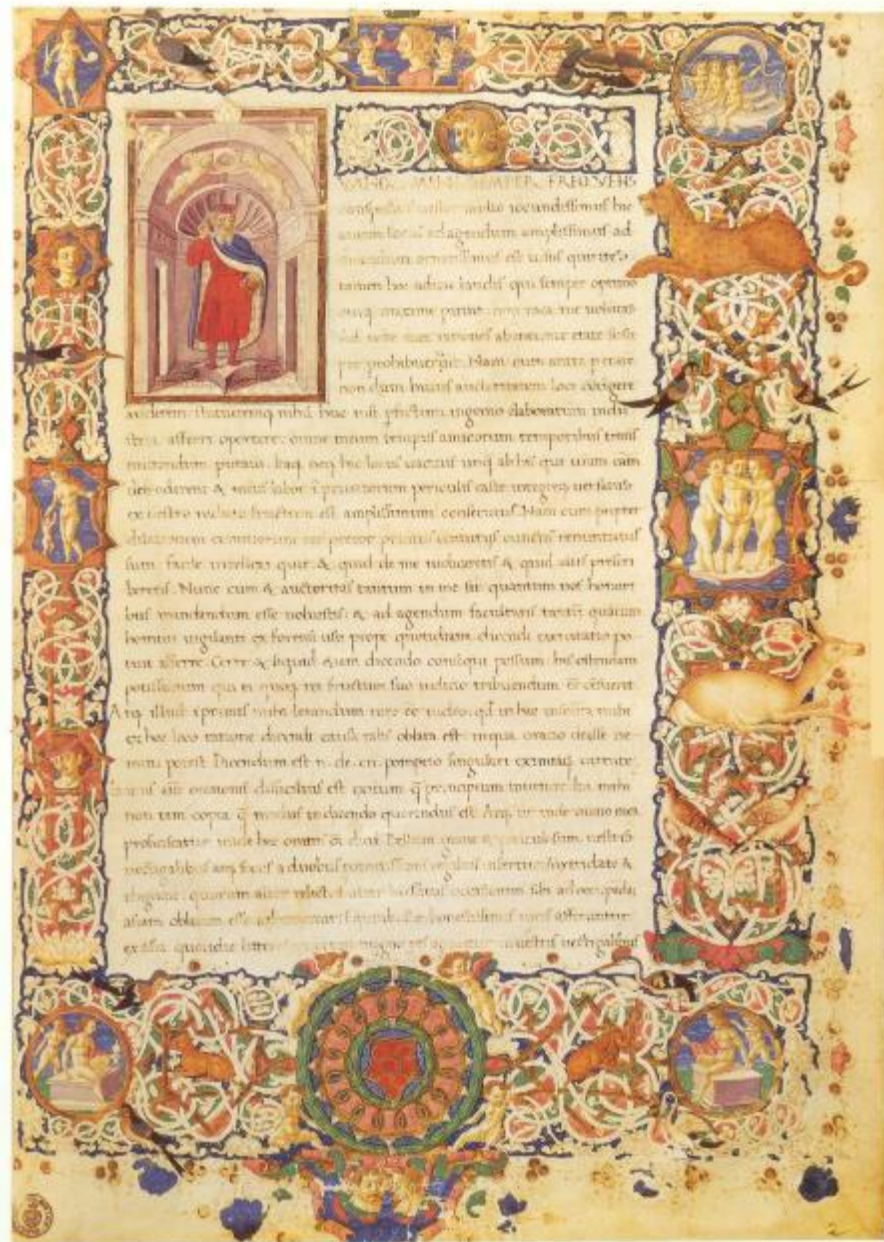 MIHI SEMPER FREQVENS
conspectus uester multo iocundissimus hic
autem locus ad agendum amplissimus ad
dicendum ornatissimus est uisus quirites
tamen hoc aditu laudis qui semper optimo
cuiq; maxime patuit non mea me uoluntas
sed uite mee rationes ab ineunte etate susce
pte prohibuerūt. Nam cum antea per etatē
non dum huius auctoritatem loci attingere
auderem statueremq nihil huc nisi pfectum ingenio elaboratum indu
stria afferri oportere: omne meum tempus amicorum temporibus trans
mittendum putaui. Itaq neq hic locus uacuus unq ab his qui uram cām
defenderent & meus labor ī priuatorum periculis caste integreq uersatus
ex uestro iudicio fructum est amplissimum consecutus Nam cum propter
dilationem comitiorum ter pretor primus centuriis cunctis renuntiatus
sum facile intellexi quir. & quid de me iudicaretis & quid aliis prescri
beretis. Nunc cum & auctoritas tantum in me sit quantum uos honori
bus mandandum esse uoluistis: & ad agendum facultatis tantū quātum
homini uigilanti ex forensi usu prope quotidiana dicendi exercitatio po
tuit afferre. Certe & siquid etiam dicendo consequi possum his ostendam
potissimum qui ei quoq rei fructum suo iudicio tribuendum eē cēsuerūt
Atq illud ī primis mihi letandum iure eē uideo: qd in hac insolita mihi
ex hoc loco ratione dicendi causa talis oblata est inqua oratio deesse ne
mini possit. Dicendum est n. de. cn. pompeio singulari eximiaq uirtute
huius autē orationis difficilius est exitum q̄ principium inuenire Ita mihi
non tam copia q̄ modus in dicendo querendus est. Atq ut inde oratio mea
proficiscatur unde hec omnis cā ducit Bellum graue & periculosum uestris
uectigalibus atq sociis a duobus potentissimis regibus infertur Mitridate &
tigrane: quorum alter relictus alter lacessitus occasionem sibi ad occupandā
asiam oblatam esse arbitrantur Equitibus ro. honestissimis uiris afferuntur
ex asia quotidie littere quorum magne res aguntur uestris uectigalibus